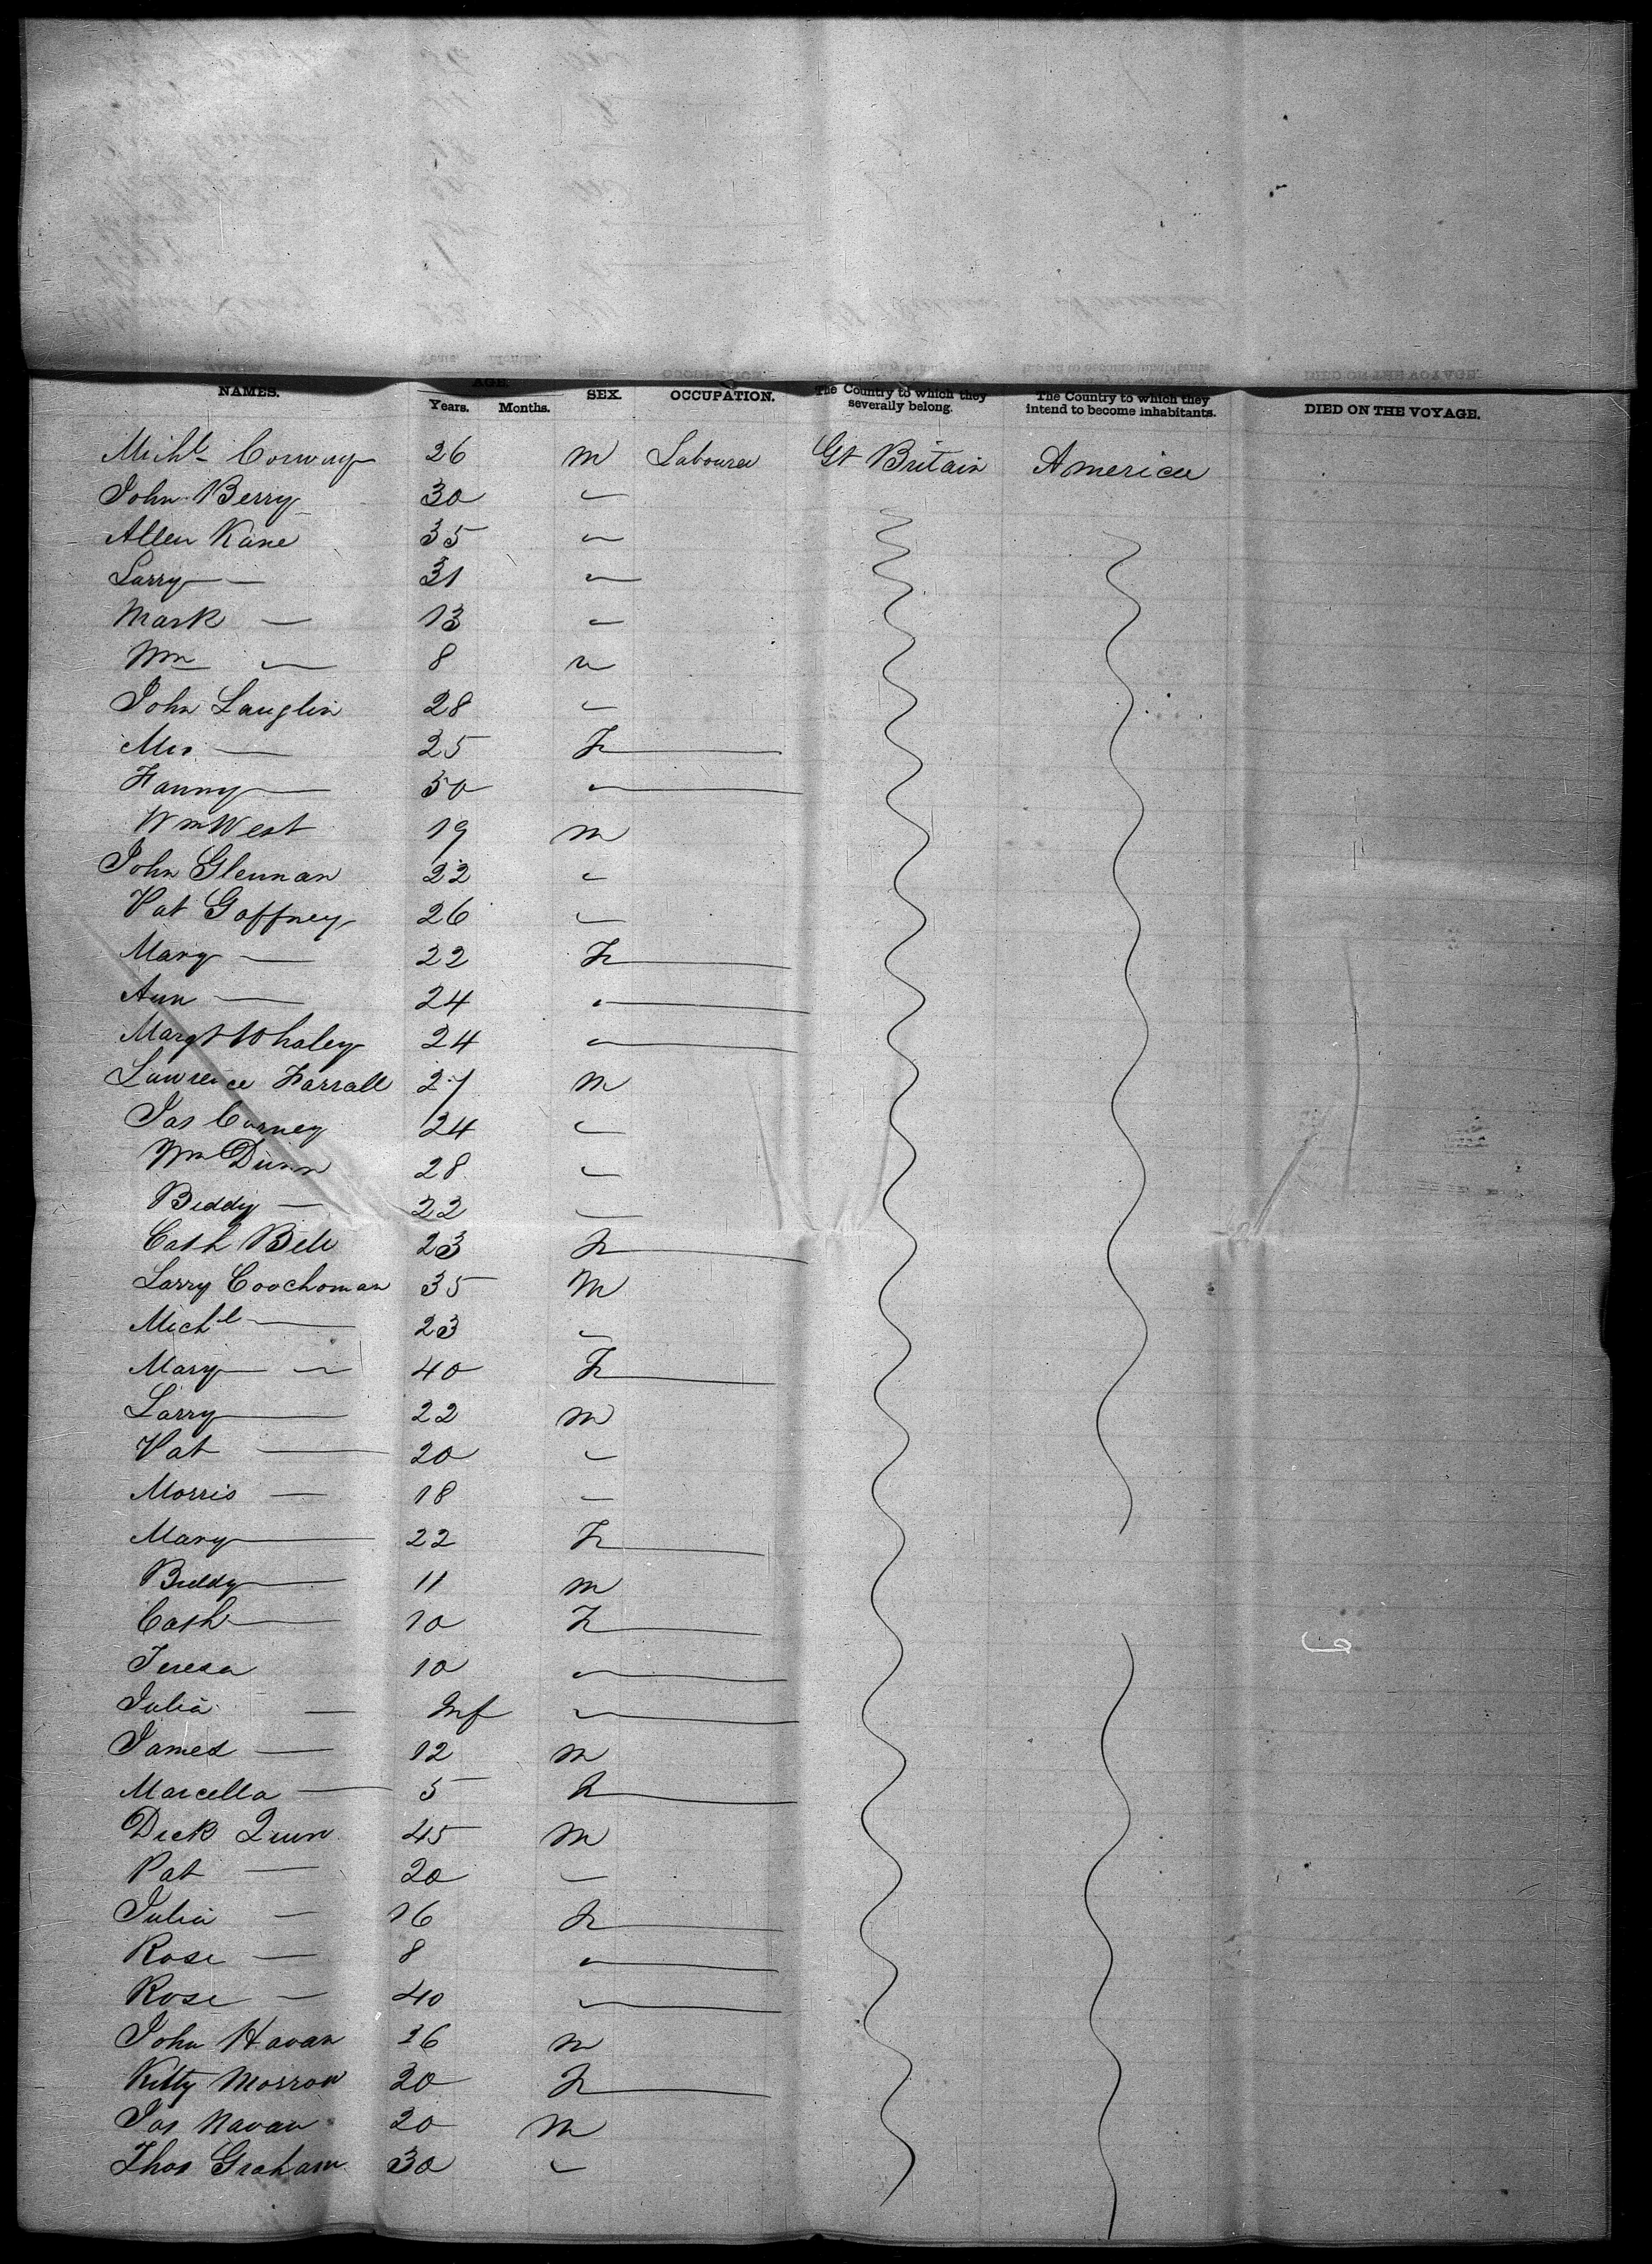 NAMES. AGE. Years. Months. SEX. OCCUPATION. The Country to which they severally belong. The Country to which they intend to become inhabitants. DIED ON THE VOYAGE.
Michl Conway 26 m Labourer Gt Britain America
John Berry 30 "
Allen Kane 35 "
Larry — 31 "
Mark — 13 "
Wm — 8 "
John Lauglin 28 "
Mrs — 25 F
Fanny — 50 "
Wm West 19 m
John Glennan 22 "
Pat Gaffney 26 "
Mary — 22 F
Ann — 24 "
Margt Whaley 24 "
Lawrence Farrall 27 m
Jas Carney 24 "
Wm Dunn 28 "
Biddy — 22 "
Cath Bell 23 F
Larry Coochoman 35 M
Michl — 23 "
Mary — 40 F
Larry — 22 m
Pat — 20 "
Morris — 18 "
Mary — 22 F
Biddy — 11 m
Cath — 10 F
Teresa 10 "
Julia — Inf "
James — 12 m
Marcella — 5 F
Dick Quin 45 m
Pat — 20 "
Julia — 16 F
Rose — 8 "
Rose — 40 "
John Havan 26 m
Kitty Morrow 20 F
Jas Navan 20 m
Thos Graham 30 "